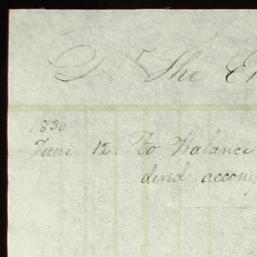 Dr The
1830
June 12. To Balance
dend accom